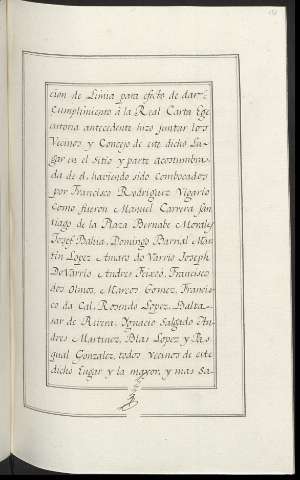 cion de Limia para efecto de dar
cumplimiento à la Real Carta Ege
cutoria antecedente hizo juntar los
Vecinos y Concejo de este dicho Lu-
gar en el Sitio y parte acostumbra
da de el, haviendo sido Combocados
por Francisco Rodriguez Vigario
como fueron Manuel Carrera San
tiago de la Plaza Bernabe Morales
Josef Bahia, Domingo Barnal Mar
tin Lopez Amaro do Varrio Joseph
Do Varrio Andres Feixoó, Francisco
dos Olmos, Marcos Gomez, Francis
co da Cal, Rosundo Lopez, Balta-
sar de Rivera, Ygnacio Salgado An
dres Martinez, Blas Lopez y Pas
qual Gonzalez, todos Vecinos de este
dicho Lugar y la mayor, y mas Sa-